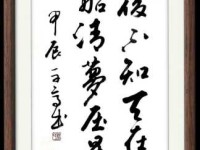 後不知天在
船清夢壓星
甲辰